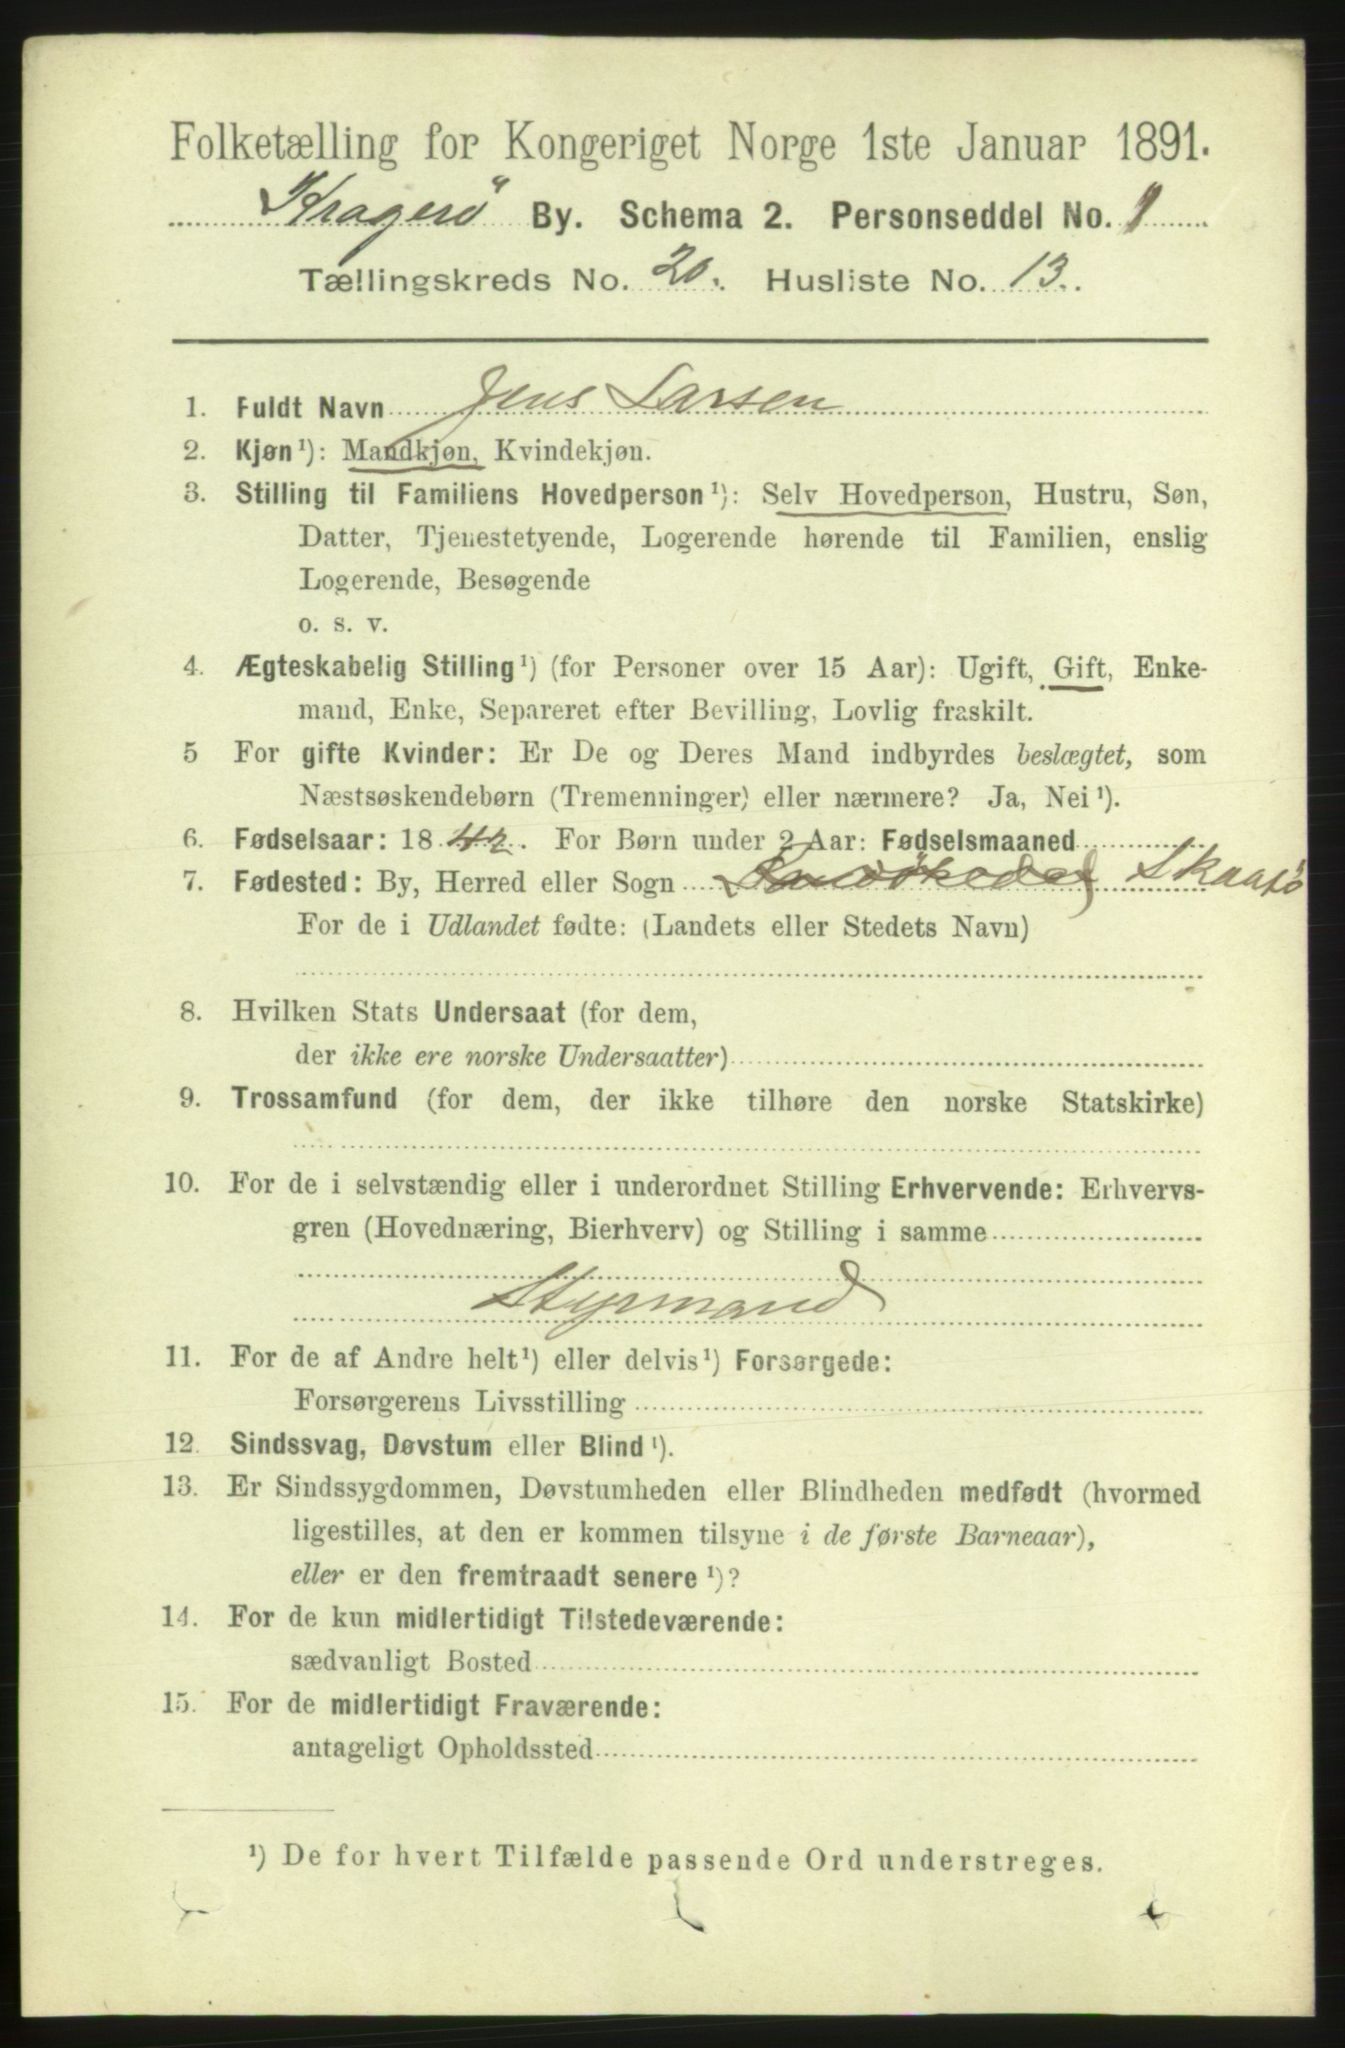 Folketælling for Kongeriget Norge 1ste Januar 1891.
Kragerö By. Schema 2. Personseddel No. 1
Tællingskreds No. 20. Husliste No. 13.
1. Fuldt Navn Jens Larsen
2. Kjøn¹): Mandkjøn, Kvindekjøn.
3. Stilling til Familiens Hovedperson¹): Selv Hovedperson, Hustru, Søn,
Datter, Tjenestetyende, Logerende hørende til Familien, enslig
Logerende, Besøgende
o. s. v.
4. Ægteskabelig Stilling¹) (for Personer over 15 Aar): Ugift, Gift, Enke-
mand, Enke, Separeret efter Bevilling, Lovlig fraskilt.
5 For gifte Kvinder: Er De og Deres Mand indbyrdes beslægtet, som
Næstsøskendebørn (Tremenninger) eller nærmere? Ja, Nei¹).
6. Fødselsaar: 1842. For Børn under 2 Aar: Fødselsmaaned
7. Fødested: By, Herred eller Sogn Skaatö
For de i Udlandet fødte: (Landets eller Stedets Navn)
8. Hvilken Stats Undersaat (for dem,
der ikke ere norske Undersaatter)
9. Trossamfund (for dem, der ikke tilhøre den norske Statskirke)
10. For de i selvstændig eller i underordnet Stilling Erhvervende: Erhvervs-
gren (Hovednæring, Bierhverv) og Stilling i samme
Styrmand
11. For de af Andre helt¹) eller delvis¹) Forsørgede:
Forsørgerens Livsstilling
12. Sindssvag, Døvstum eller Blind¹).
13. Er Sindssygdommen, Døvstumheden eller Blindheden medfødt (hvormed
ligestilles, at den er kommen tilsyne i de første Barneaar),
eller er den fremtraadt senere¹)?
14. For de kun midlertidigt Tilstedeværende:
sædvanligt Bosted
15. For de midlertidigt Fraværende:
antageligt Opholdssted
¹) De for hvert Tilfælde passende Ord understreges.